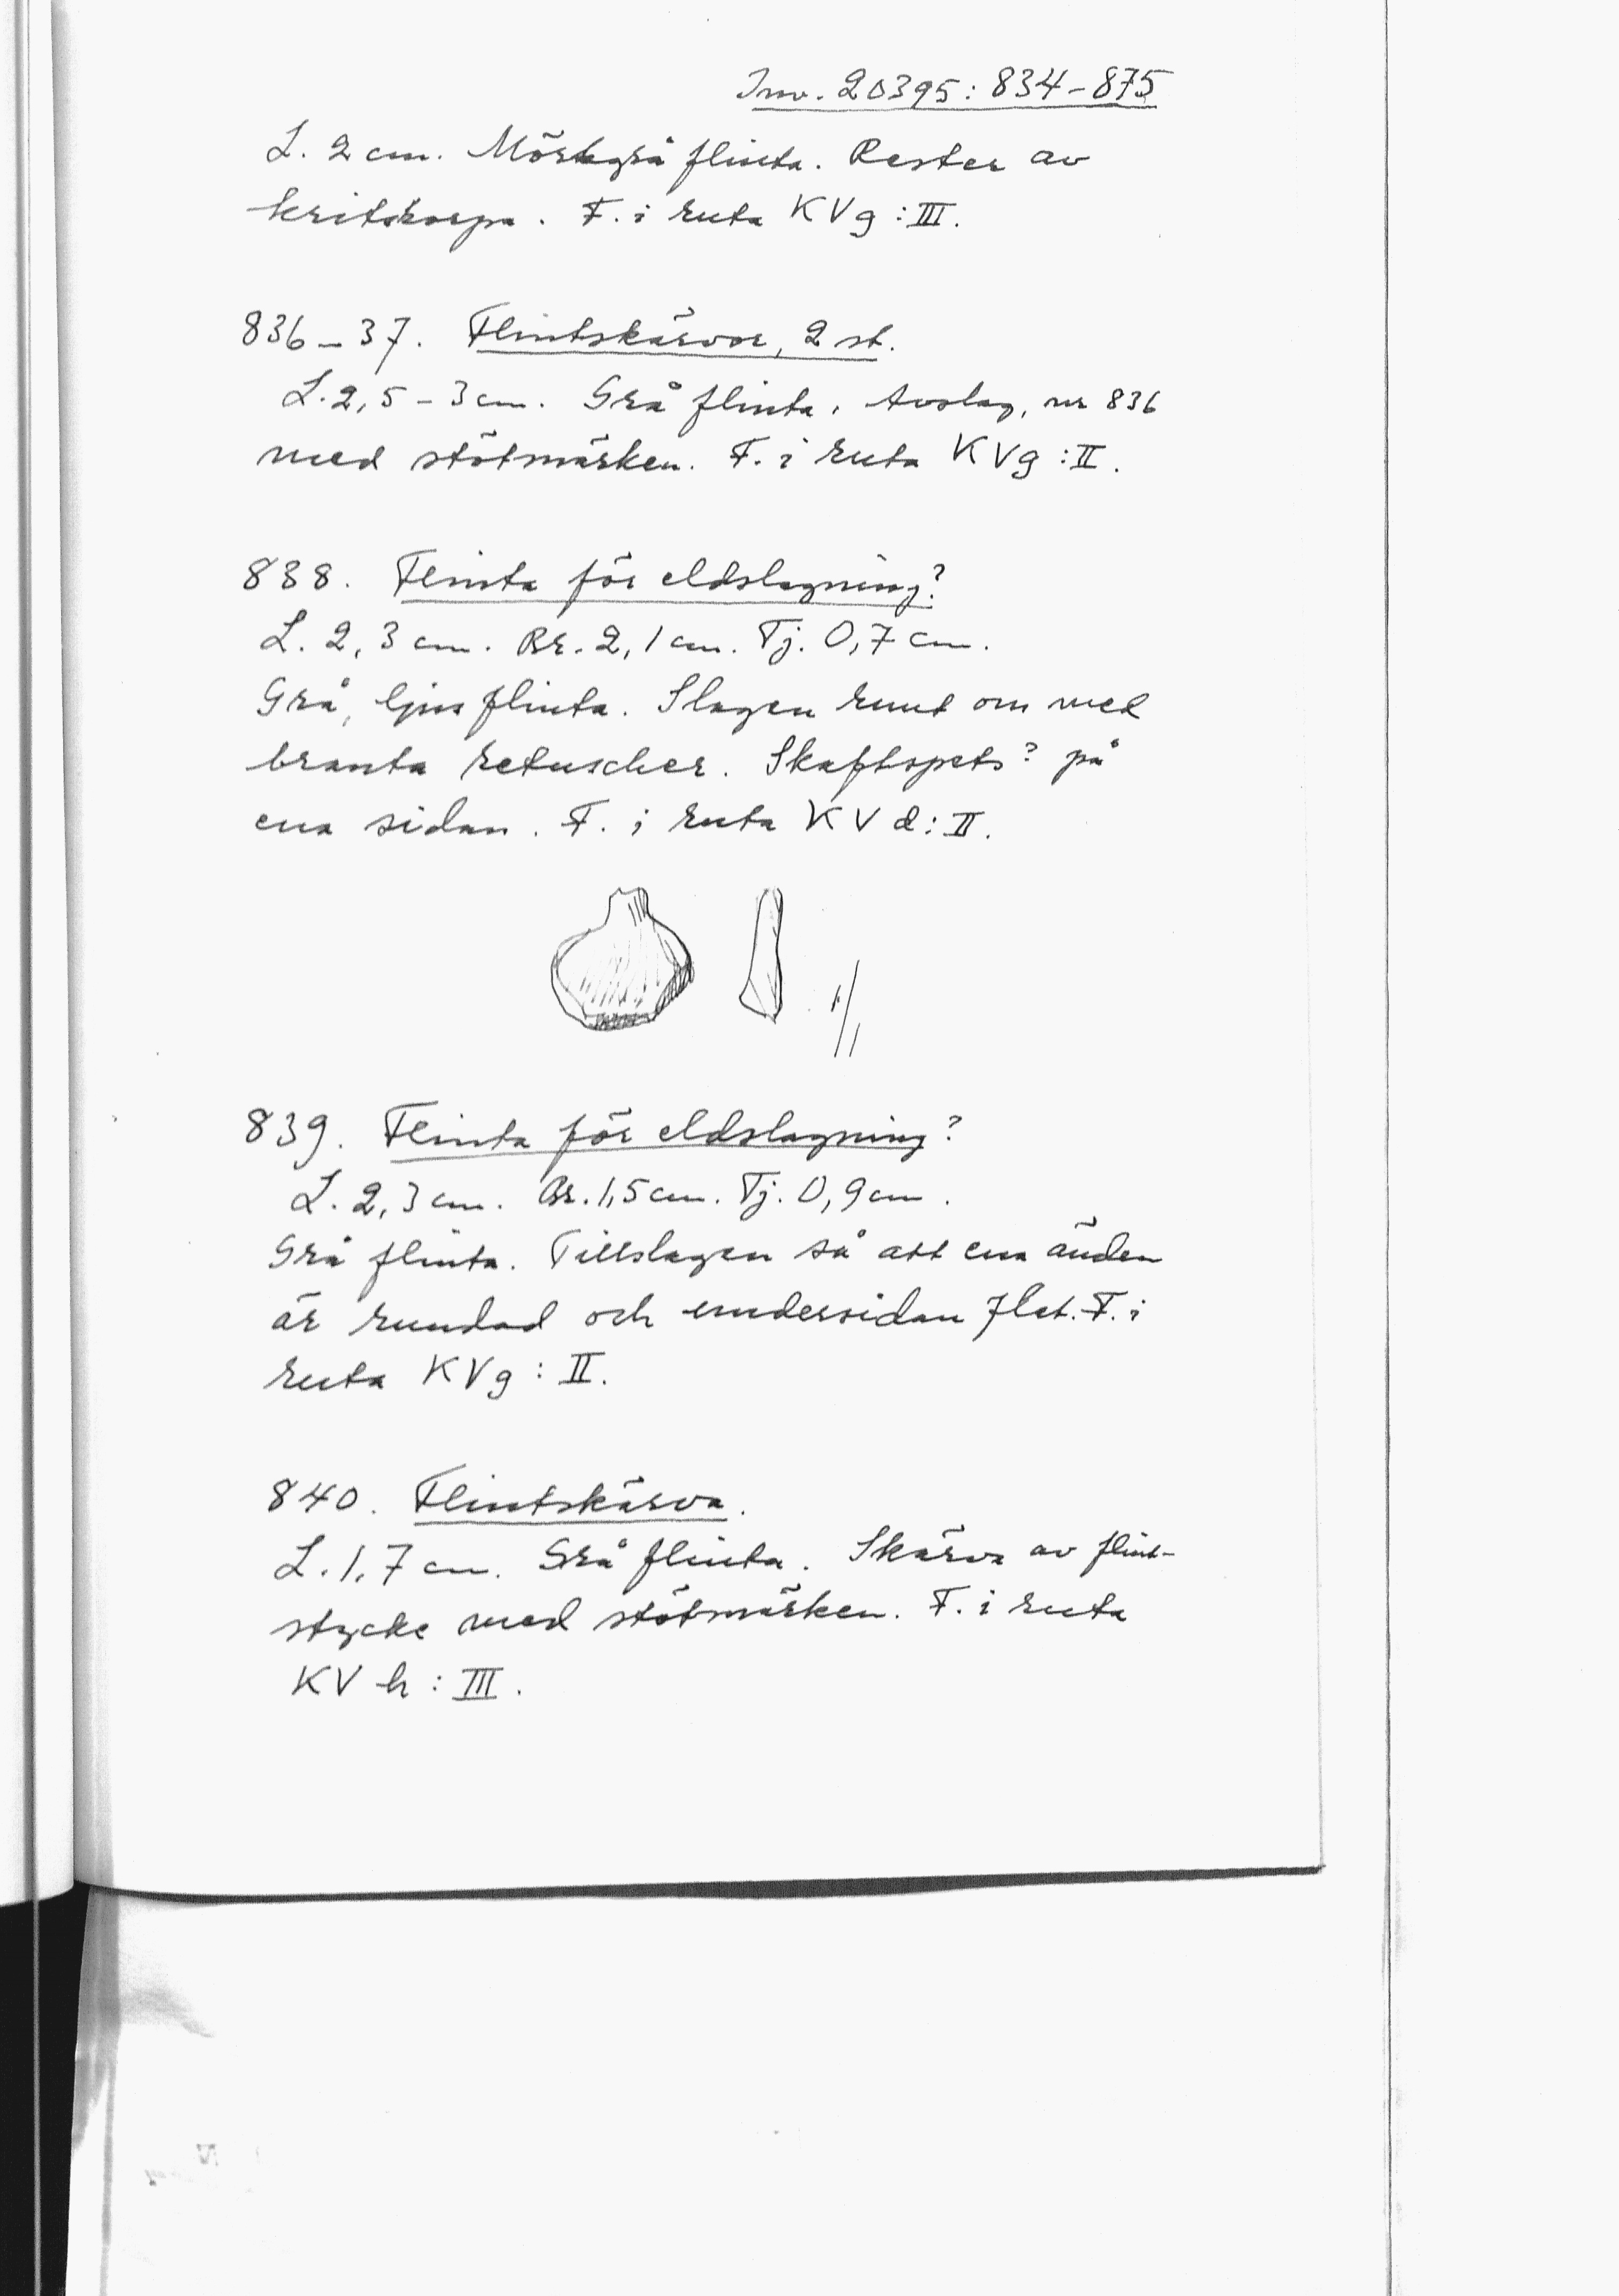 Inv. 20395: 834-875
L. 2 cm. Mörkgrå flinta. Rester av
kritskorpa. F. i ruta KVg: III.
836-37. Flintskärvor, 2 st.
L. 2,5-3 cm. Grå flinta. Avslag, nr 836
med stötmärken. F. i ruta KVg: II.
838. Flinta för eldslagning?
L. 2,3 cm. Br. 2,1 cm. Tj. 0,7 cm.
Grå, ljus flinta. Slagen runt om med
branta retuscher. Skaftspets? på
ena sidan. F. i ruta KVd: II.
1/1
839. Flinta för eldslagning?
L. 2,3 cm. Br. 1,5 cm. Tj. 0,9 cm.
Grå flinta. Tillslagen så att ena änden
är rundad och undersidan flat. F. i
ruta KVg: II.
840. Flintskärva.
L. 1,7 cm. Grå flinta. Skärva av flint-
stycke med stötmärken. F. i ruta
KV h: III.